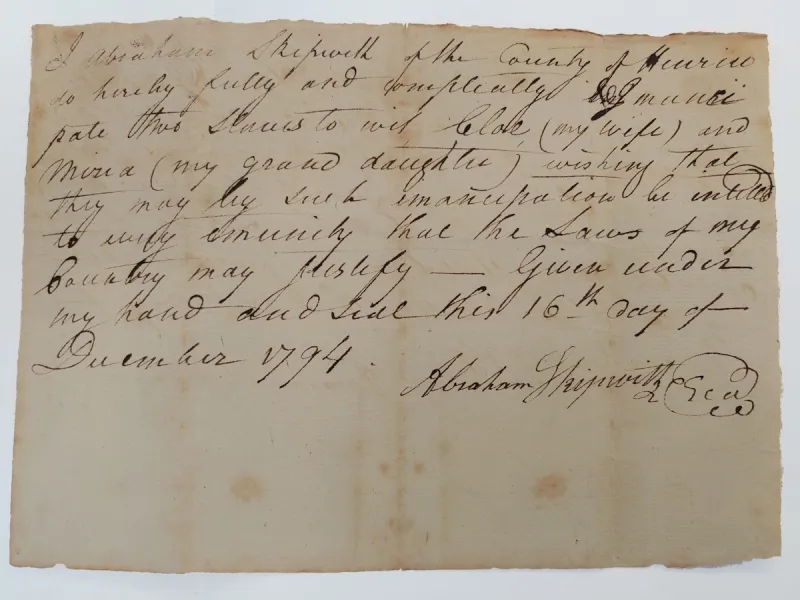 I Abraham Skipwith of the County of Henrico
do hereby fully and compleatly Emanci
pate two Slaves to wit Cloe, (my wife) and
Miria (my grand daughter) wishing that
they may by such emancipation be intitled
to every emunity that the Laws of my
Country may justify — Given under
my hand and seal this 16th day of
December 1794.
Abraham Skipwith Seal